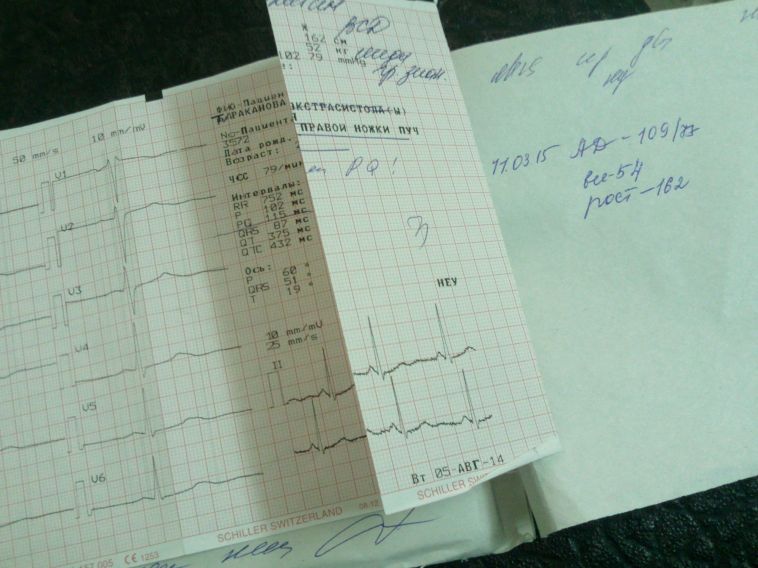 50 mm/s 10 mm/mV
V1
V2
V3
V4
V5
V6
CE 1253
Фио-Пациен
ТАРАКАНОВА
No-Пациента
3572
Дата рожд.
Возраст:
ЧСС 79/мин
Интервалы:
RR 752 мс
P 102 мс
PQ 115 мс
QRS 87 мс
QT 375 мс
QTC 432 мс
Ось:
P 60 °
QRS 51 °
T 19 °
10 mm/mV
25 mm/s
II
SCHILLER SWITZERLAND
ВСД
Ж
162 см
52 кг
102 79 mmHg
ЭКСТРАСИСТОЛА(Ы)
ПРАВОЙ НОЖКИ ПУЧ
PQ!
НЕУ
Вт 05-АВГ-14
SCHILLER SWIT
11.03.15 АД - 109/77
вес-54
рост-162